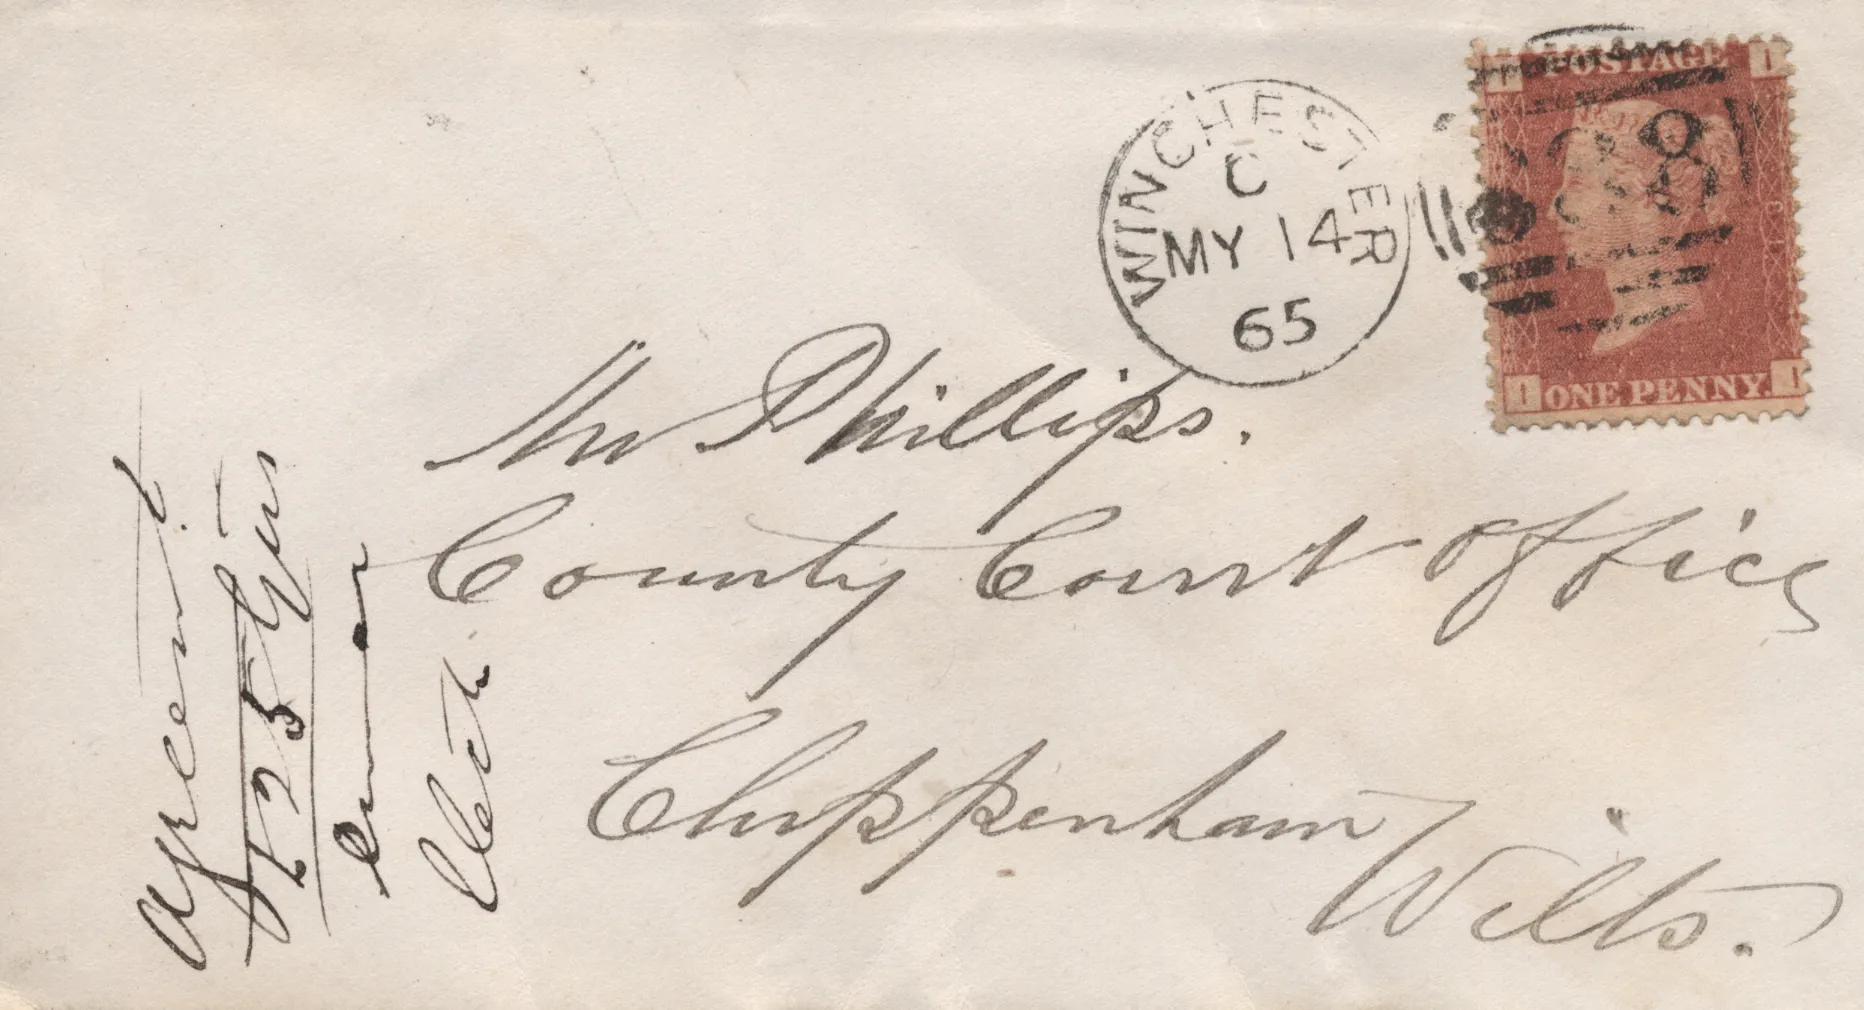 WINCHESTER
C
MY 14
65
POSTAGE
I I
I I
ONE PENNY.
Mr Phillips.
County Court Office
Chippenham
Wilts.
Agreemt
125 Gns